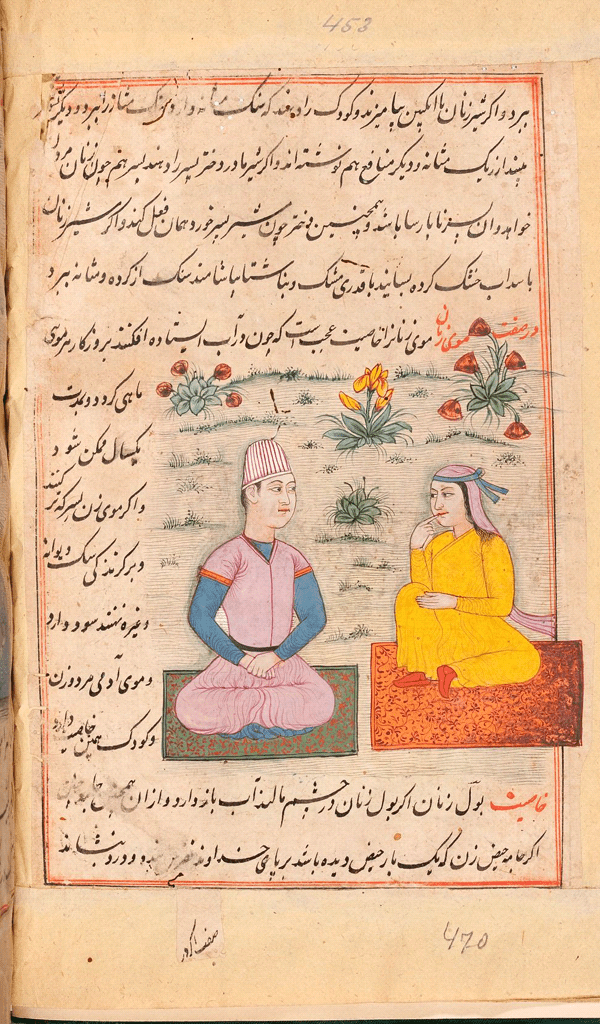 453
ببرد و اگر شیر زنان با انگبین بیامیزند و کودک را دهند که سنگ مثانه دارد سنگ مثانه را ببرد و دیگر
از ریک مثانه و دیگر منافع هم نوشته اند و اگر شیر مادر دختر پسر را دهند پسر هم چون زنان
خواهد و ان پسر نا پارسا باشد و همچنین دختر چون شیر پسر خورد همان فعل کند و اگر شیر زنان
با سداب خشک کرده بسایند با قدری مشک و بناشتا بیاشامند سنک از کرده و مثانه ببرد
در صفت موی زنان موی زنانرا خاصیت عجب است که چون در آب ایستاده افکنند بروزکار هر موی
ماهی کردد و بمدت
یکسال ممکن شود
و اگر موی زن بسرکه تر کنند
و بر کزندکی سک دیوانه
و غیره نهند سود دارد
و موی آدمی مرد و زن
و کودک همین خاصیت دارد
خاصیت بول زنان اگر بول زنان در چشم مالند آب باز دارد و از ان
اگر جامه حیض زن که یک بار حیض دیده باشد بر پای خداوند نقرس بندند و درد بنشاند
470